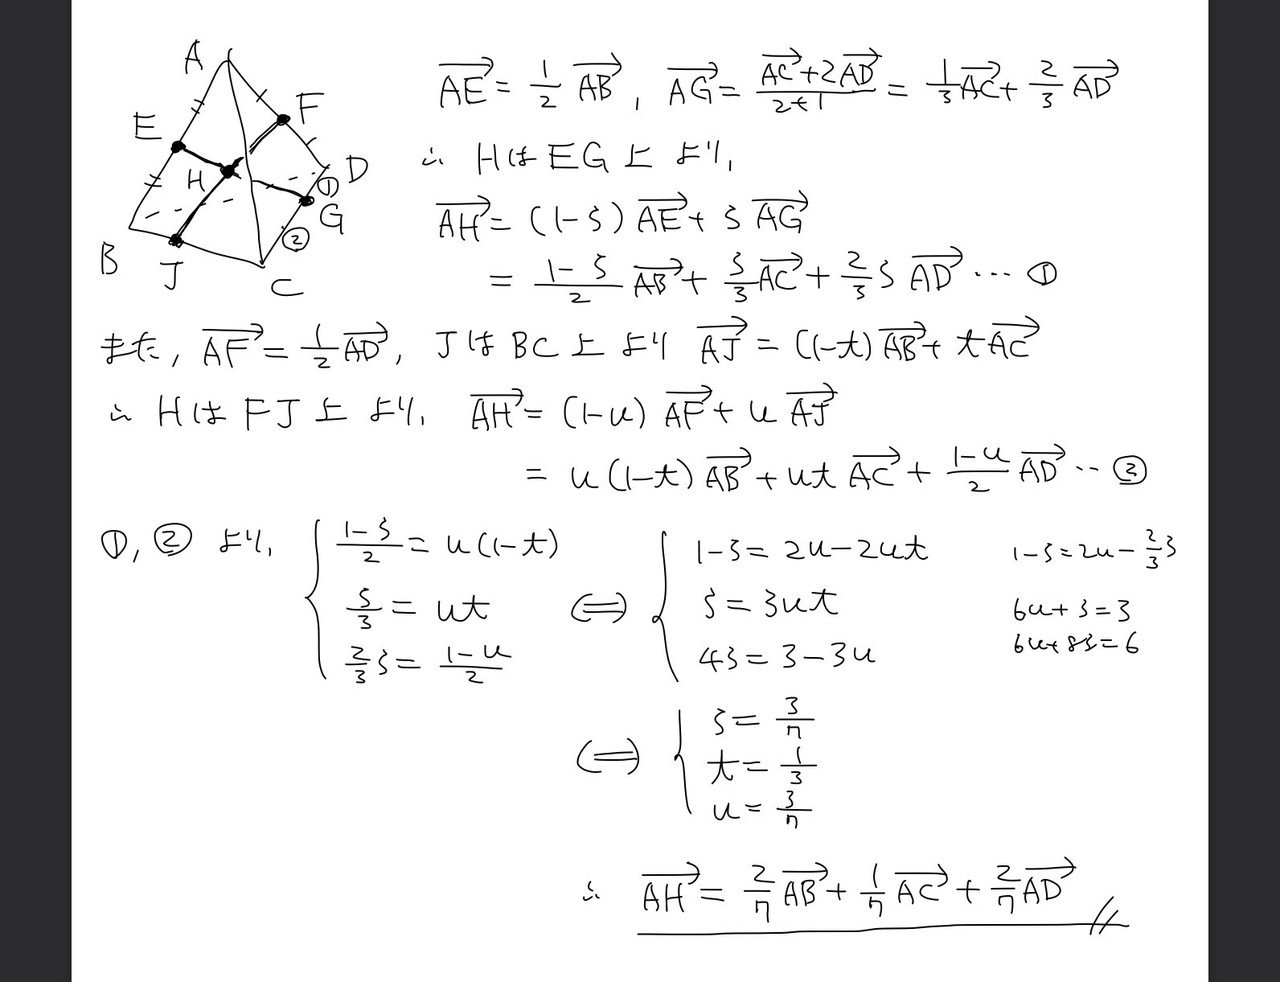 A
E
F
H
D
①
G
②
B
J
C
AE→ = 1/2 AB→, AG→ = (AC→+2AD→)/(2+1) = 1/3 AC→ + 2/3 AD→
∴ HはEG上より,
AH→ = (1-s) AE→ + s AG→
= (1-s)/2 AB→ + s/3 AC→ + 2/3 s AD→ … ①
また, AF→ = 1/2 AD→, JはBC上より AJ→ = (1-t) AB→ + t AC→
∴ HはFJ上より, AH→ = (1-u) AF→ + u AJ→
= u(1-t) AB→ + ut AC→ + (1-u)/2 AD→ ‥ ②
①, ②より, { (1-s)/2 = u(1-t) ⟺ { 1-s = 2u-2ut 1-s=2u-2/3 s
s/3 = ut s = 3ut 6u+s=3
2/3 s = (1-u)/2 4s = 3-3u 6u+8s=6
⟺ { s = 3/7
t = 1/3
u = 3/7
∴ AH→ = 2/7 AB→ + 1/7 AC→ + 2/7 AD→ //